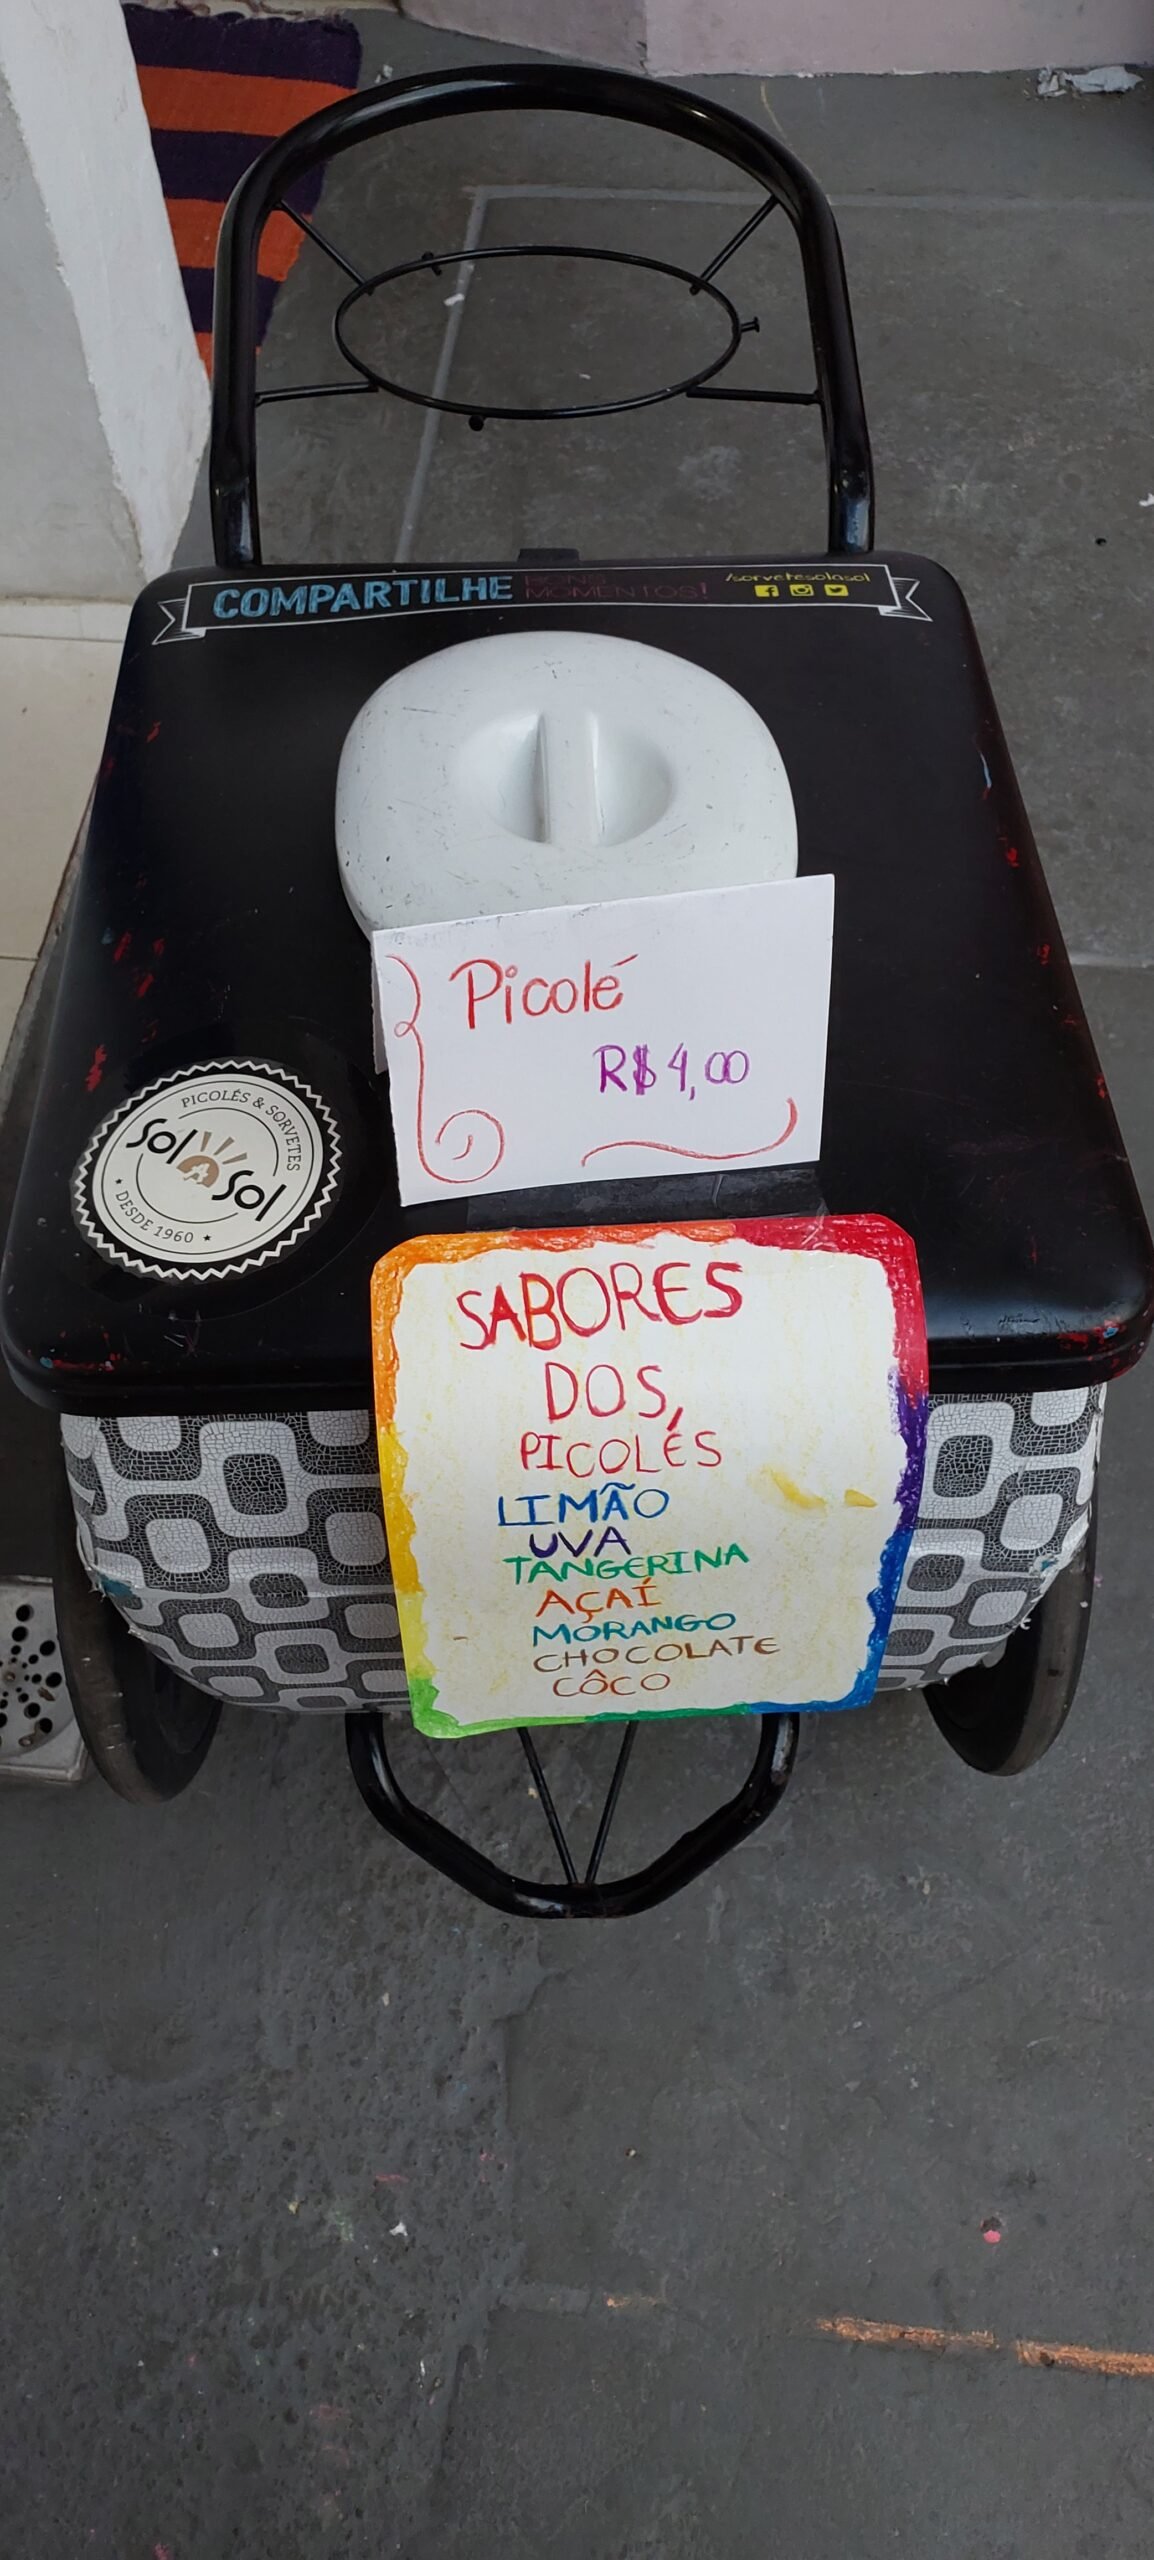 COMPARTILHE BONS MOMENTOS!
/sorvetesolasol
Picolé
R$ 4,00
PICOLÉS & SORVETES
Sol A Sol
DESDE 1960
SABORES
DOS
PICOLÉS
LIMÃO
UVA
TANGERINA
AÇAÍ
MORANGO
CHOCOLATE
CÔCO